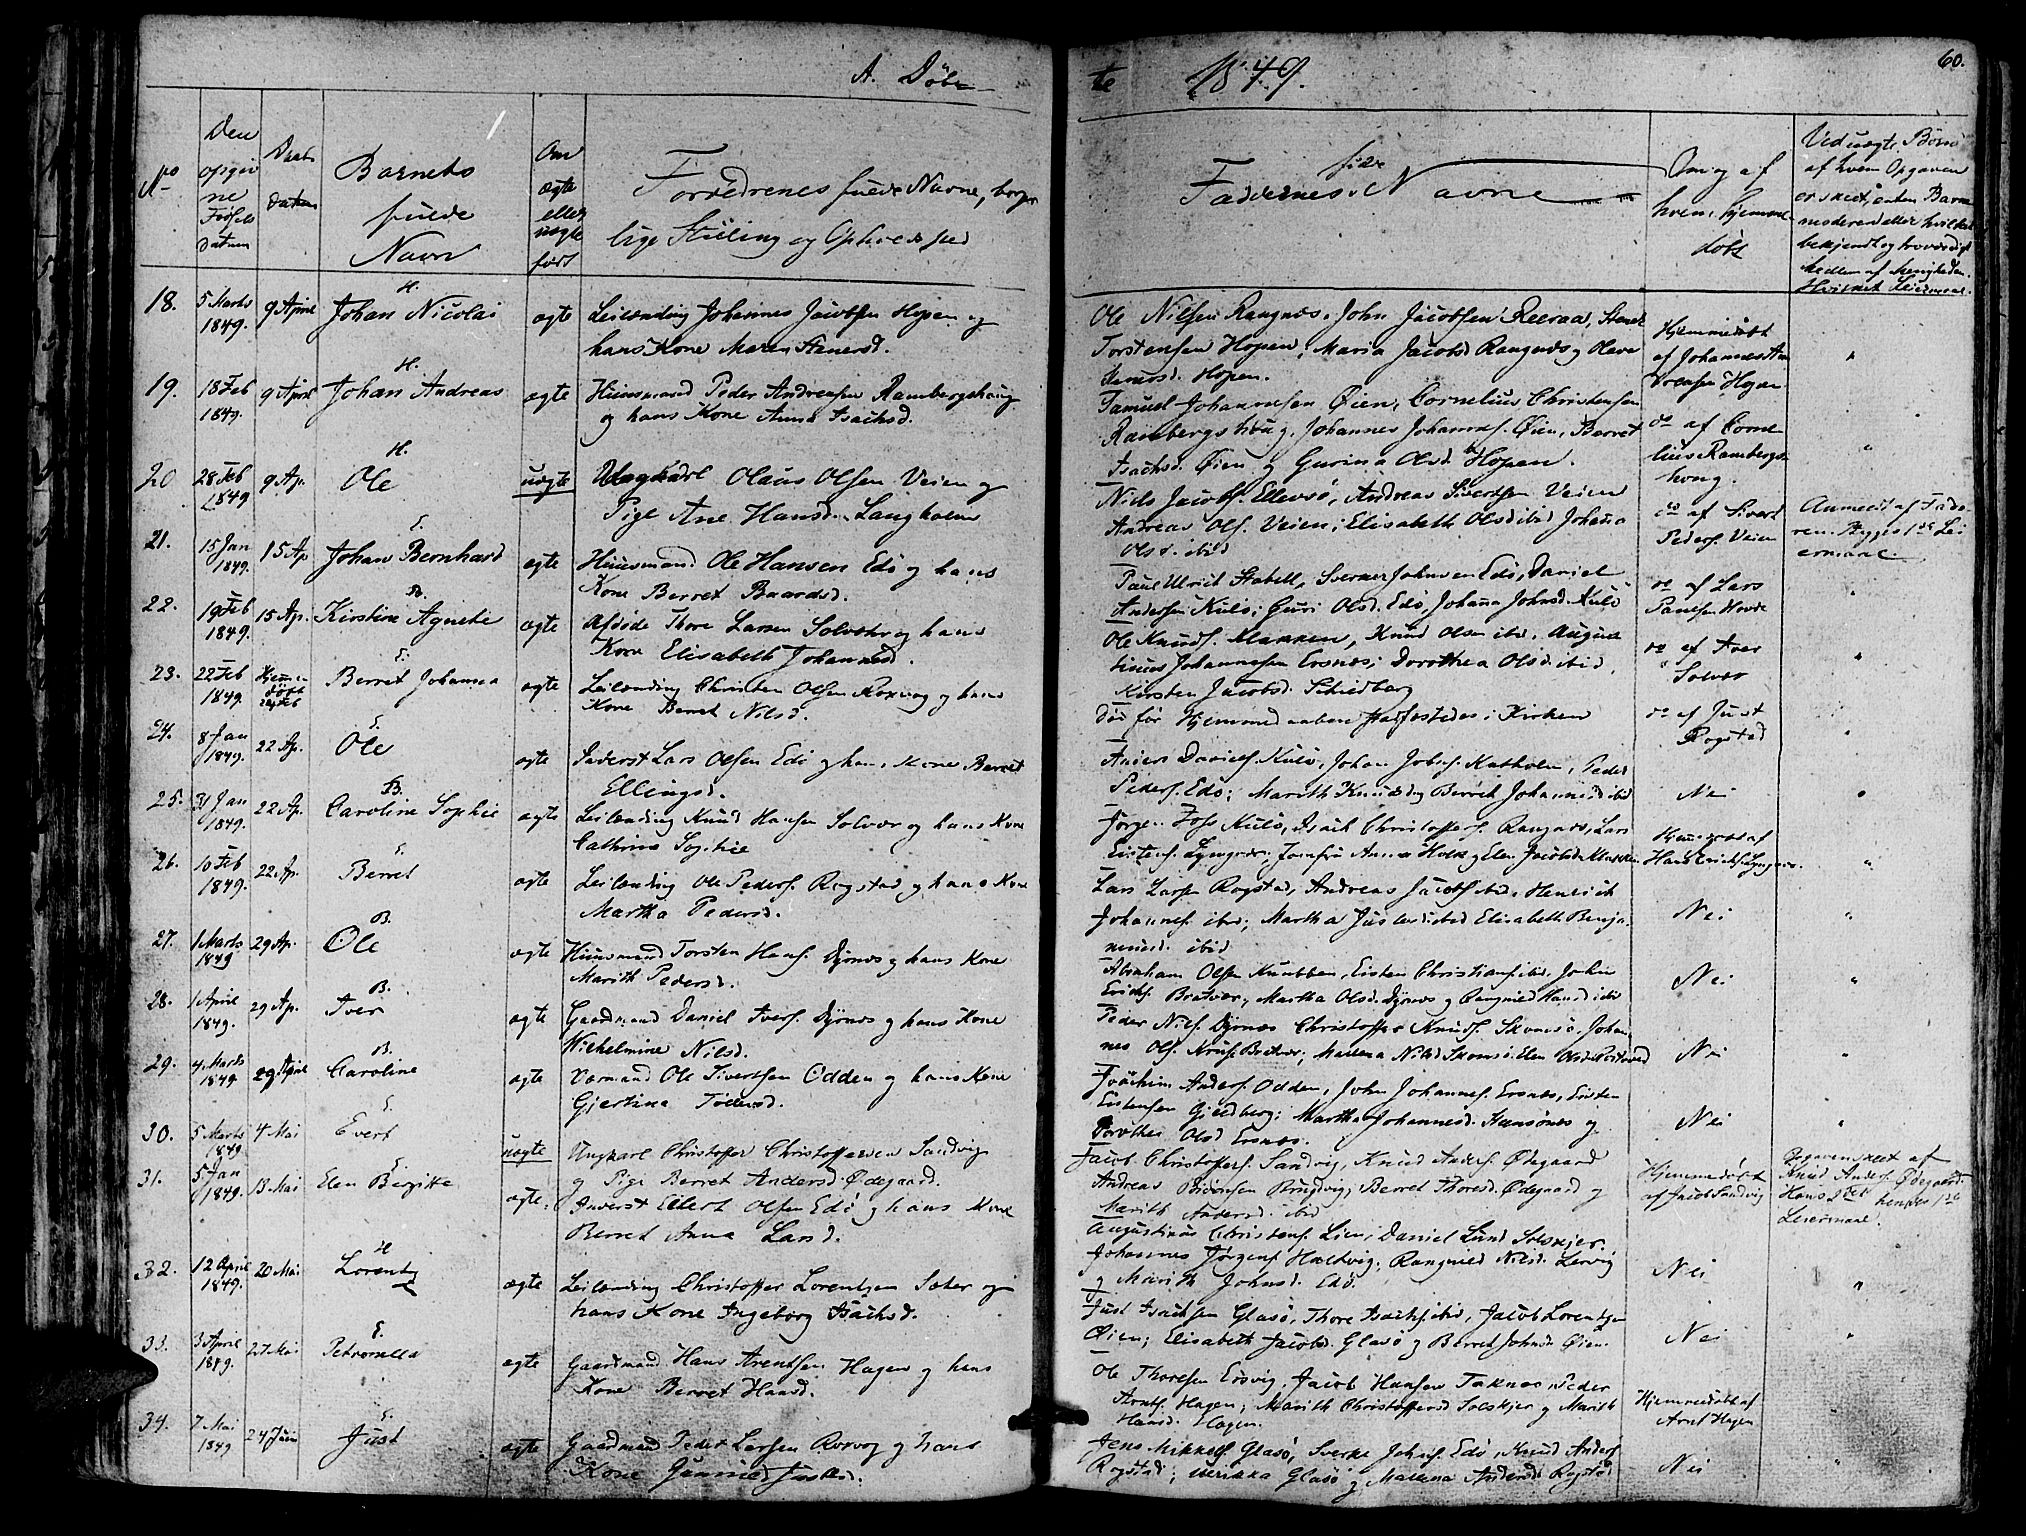 60.
A. Døbte 1849.
No
Den opgivne Fødsels Datum
Daabs Datum
Barnets fulde Navn
Om ægte eller uægte født
Forældrenes fulde Navne, borgerlige Stilling og Opholdssted
Faddernes fulde Navne
Om og af hvem hjemmedøbt
Ved uægte Børn af hvem Opgaven er skeet, enten Barnemoderen eller hvilket bekjendt og troværdigt Medlem af Menigheden. Hvilket Leiermaal.
18. 5 Marts 1849. 9 April H. Johan Nicolai ægte Leilænding Johannes Jacobsen Hopen og
hans Kone Maren Stenersd.
Ole Nilsen Rangnæs, John Jacobsen Reeraa, Stener
Torstensen Hopen; Maria Jacobsd Rangnæs og Olava
Knudsd. Hopen.
Hjemmedøbt
af Johannes An
dreasen Hopen
19. 18 Feb 1849. 9 April H. Johan Andreas ægte Huusmand Peder Andreasen Rambergshaug
og hans Kone Anne Isachsd.
Samuel Johannesen Øien, Cornelius Christensen
Rambergshoug, Johannes Johannesf. Øien, Berret
Isachsd. Øien og Gurina Olsd. Hopen.
do af Corne
lius Rambergs
houg.
20 28 Feb 1849 9 Ap. H. Ole uægte Ungkarl Olaus Olsen Veien og
Pige Ane Hansd. Langholm
Niels Jacobs. Ellevsø, Andreas Sivertsen Veien
Andreas Ols. Veien; Elisabeth Olsd ibid Johanna
Olsd. ibid
do af Sivert
Peders. Veien
Anmeldt af Fade
ren. Begges 1ste Lei
ermaal.
21. 15 Jan 1849. 15 Ap E. Johan Bernhard ægte Huusmand Ole Hansen Edø og hans
Kone Berret Baardsd.
Paul Ulrich Stabell, Sverker Johnsen Edø, Daniel
Andersen Kulø; Guri Olsd. Edø, Johanna Johnsd. Kulø
do af Lars
Paulsen Hovde
22. 19 Feb 1849. 15 Ap. B. Kirstine Agnete ægte Afdøde Thore Larsen Solvær og hans
Kone Elisabeth Johannesd.
Ole Knuds. Klakken, Knud Olsen ibid. Augus
tinus Johannesen Ersnæs; Dorothea Olsd. ibid,
Kirsten Jacobsd. Schiedberg
do af Iver
Solvær
23. 22 Feb 1849. Hjemmedøbt 24 Feb E. Berret Johanna ægte Leilænding Christen Olsen Roxvog og hans
Kone Berret Nilsd.
Død før Hjemmedaaben stadfæstedes i Kirken
do af Just
Rogstad
24. 8 Jan 1849. 22 Ap. E. Ole ægte Inderst Lars Olsen Edø og hans Kone Berret
Ellingsd.
Anders Daniels. Kulø, Johan Jobs. Kalholm, Peder
Peders. Edø; Marith Knudsd og Berret Johannesd ibid
Nei
25. 31 Jan 1849. 22 Ap. B. Caroline Sophie ægte Leilænding Knud Hansen Solvær og hans Kone
Cathrine Sophie
Jørgen Kulø, Isach Christoffers. Rangnæs, Lars
Eistens. Lyngvær; Jomfru Anna Holk og Elen Jacobsd. Klakken
Hjemmedøbt af
26. 10 Feb 1849. 22 Ap. E. Berret ægte Leilænding Ole Peders. Rogstad og hans Kone
Martha Pedersd.
Lars Larsen Rogstad, Andreas Jacobs ibid. Henrich
Johannes. ibid; Martha Justersd ibid Elisabeth Benja
minsd. ibid
Nei
27. 1 Marts 1849 29 Ap. B. Ole ægte Huusmand Torsten Hans. Dyrnæs og hans Kone
Marith Pedersd.
Abraham Olsen Knubben, Eisten Christians. ibid. John
Erichs. Bratvær; Martha Olsd. Dyrnæs og Rangnild Hansd ibid
Nei
28. 1 April 1849. 29 Ap. B. Iver ægte Gaardmand Daniel Ivers. Dyrnæs og hans Kone
Wilhelmine Nilsd.
Peder Nils. Dyrnæs Christoffer Knuds. Skomsø. Johan
nes Ols. Bratvær; Mallena Nilsd Skomsø. Elen
Nei
29. 4 Marts 1849 29 April B. Caroline ægte Ole Sivertsen Odden og hans Kone
Gjertina Tødersd.
Joachim Anders. Odden, John Johannes. Ersnæs, Eisten
Eistensen Gjeldberg; Martha Johannesd. og
Dorthea Olsd Ersnæs.
Nei
30. 5 Marts 1849 4 Mai E. Evert uægte Ungkarl Christoffer Christoffersen Sandvig
og Pige Berret Andersd. Ødegaard.
Jacob Christoffers. Sandvig, Knud Anders. Ødegaard
Andreas Brugdvig; Berret Thoresd. Ødegaard og
Marith Andersd. ibid
Hjemmedøbt
af Jacob Sandvig
Opgaven skeet af
Knud Anders. Ødegaard.
Hans 2det hendes 1ste
Leiermaal.
31. 5 Jan 1849. 13 Mai E. Elen Birgitte ægte Inderst Ellert Olsen Edø og hans Kone
Berret Anna Larsd.
Augustinus Christens. Lien, Daniel Lund Solskjer.
Johannes Jørgens. Haltvig; Rangnild Nilsd. Lervig
og Marith Johnsd. Edø.
Nei
32. 12 April 1849. 20 Mai H Lorentz ægte Leilænding Christoffer Lorentzen Sæter og
hans Kone Ingeborg Isachsd.
Just Isachsen Glasø, Thore Isachs. ibid, Jacob Lorentzen
Øien; Elisabeth Jacobsd. Glasø og Berret Johnsd Øien.
Nei
33. 3 April 1849. 27 Mai E. Petronella ægte Gaardmand Hans Arentsen Hagen og hans
Kone Berret Hansd.
Ole Thoresen Ersvig. Jacob Hansen Taknæs, Peder
Arnts. Hagen; Marith Christoffersd Solskjer og Marith
Hansd. Hagen.
Hjemmedøbt af
Arnt Hagen
34. 7 Mai 1849 24 Juni E. Just ægte Gaardmand Peder Larsen Rorvog og hans
Kone Gunnild Justersd.
Jens Mikkels. Glasø, Sverke Johns. Edø, Knud Anders
Rogstad; Ulrikka Glasø og Mallena Andersd Rogstad
Nei